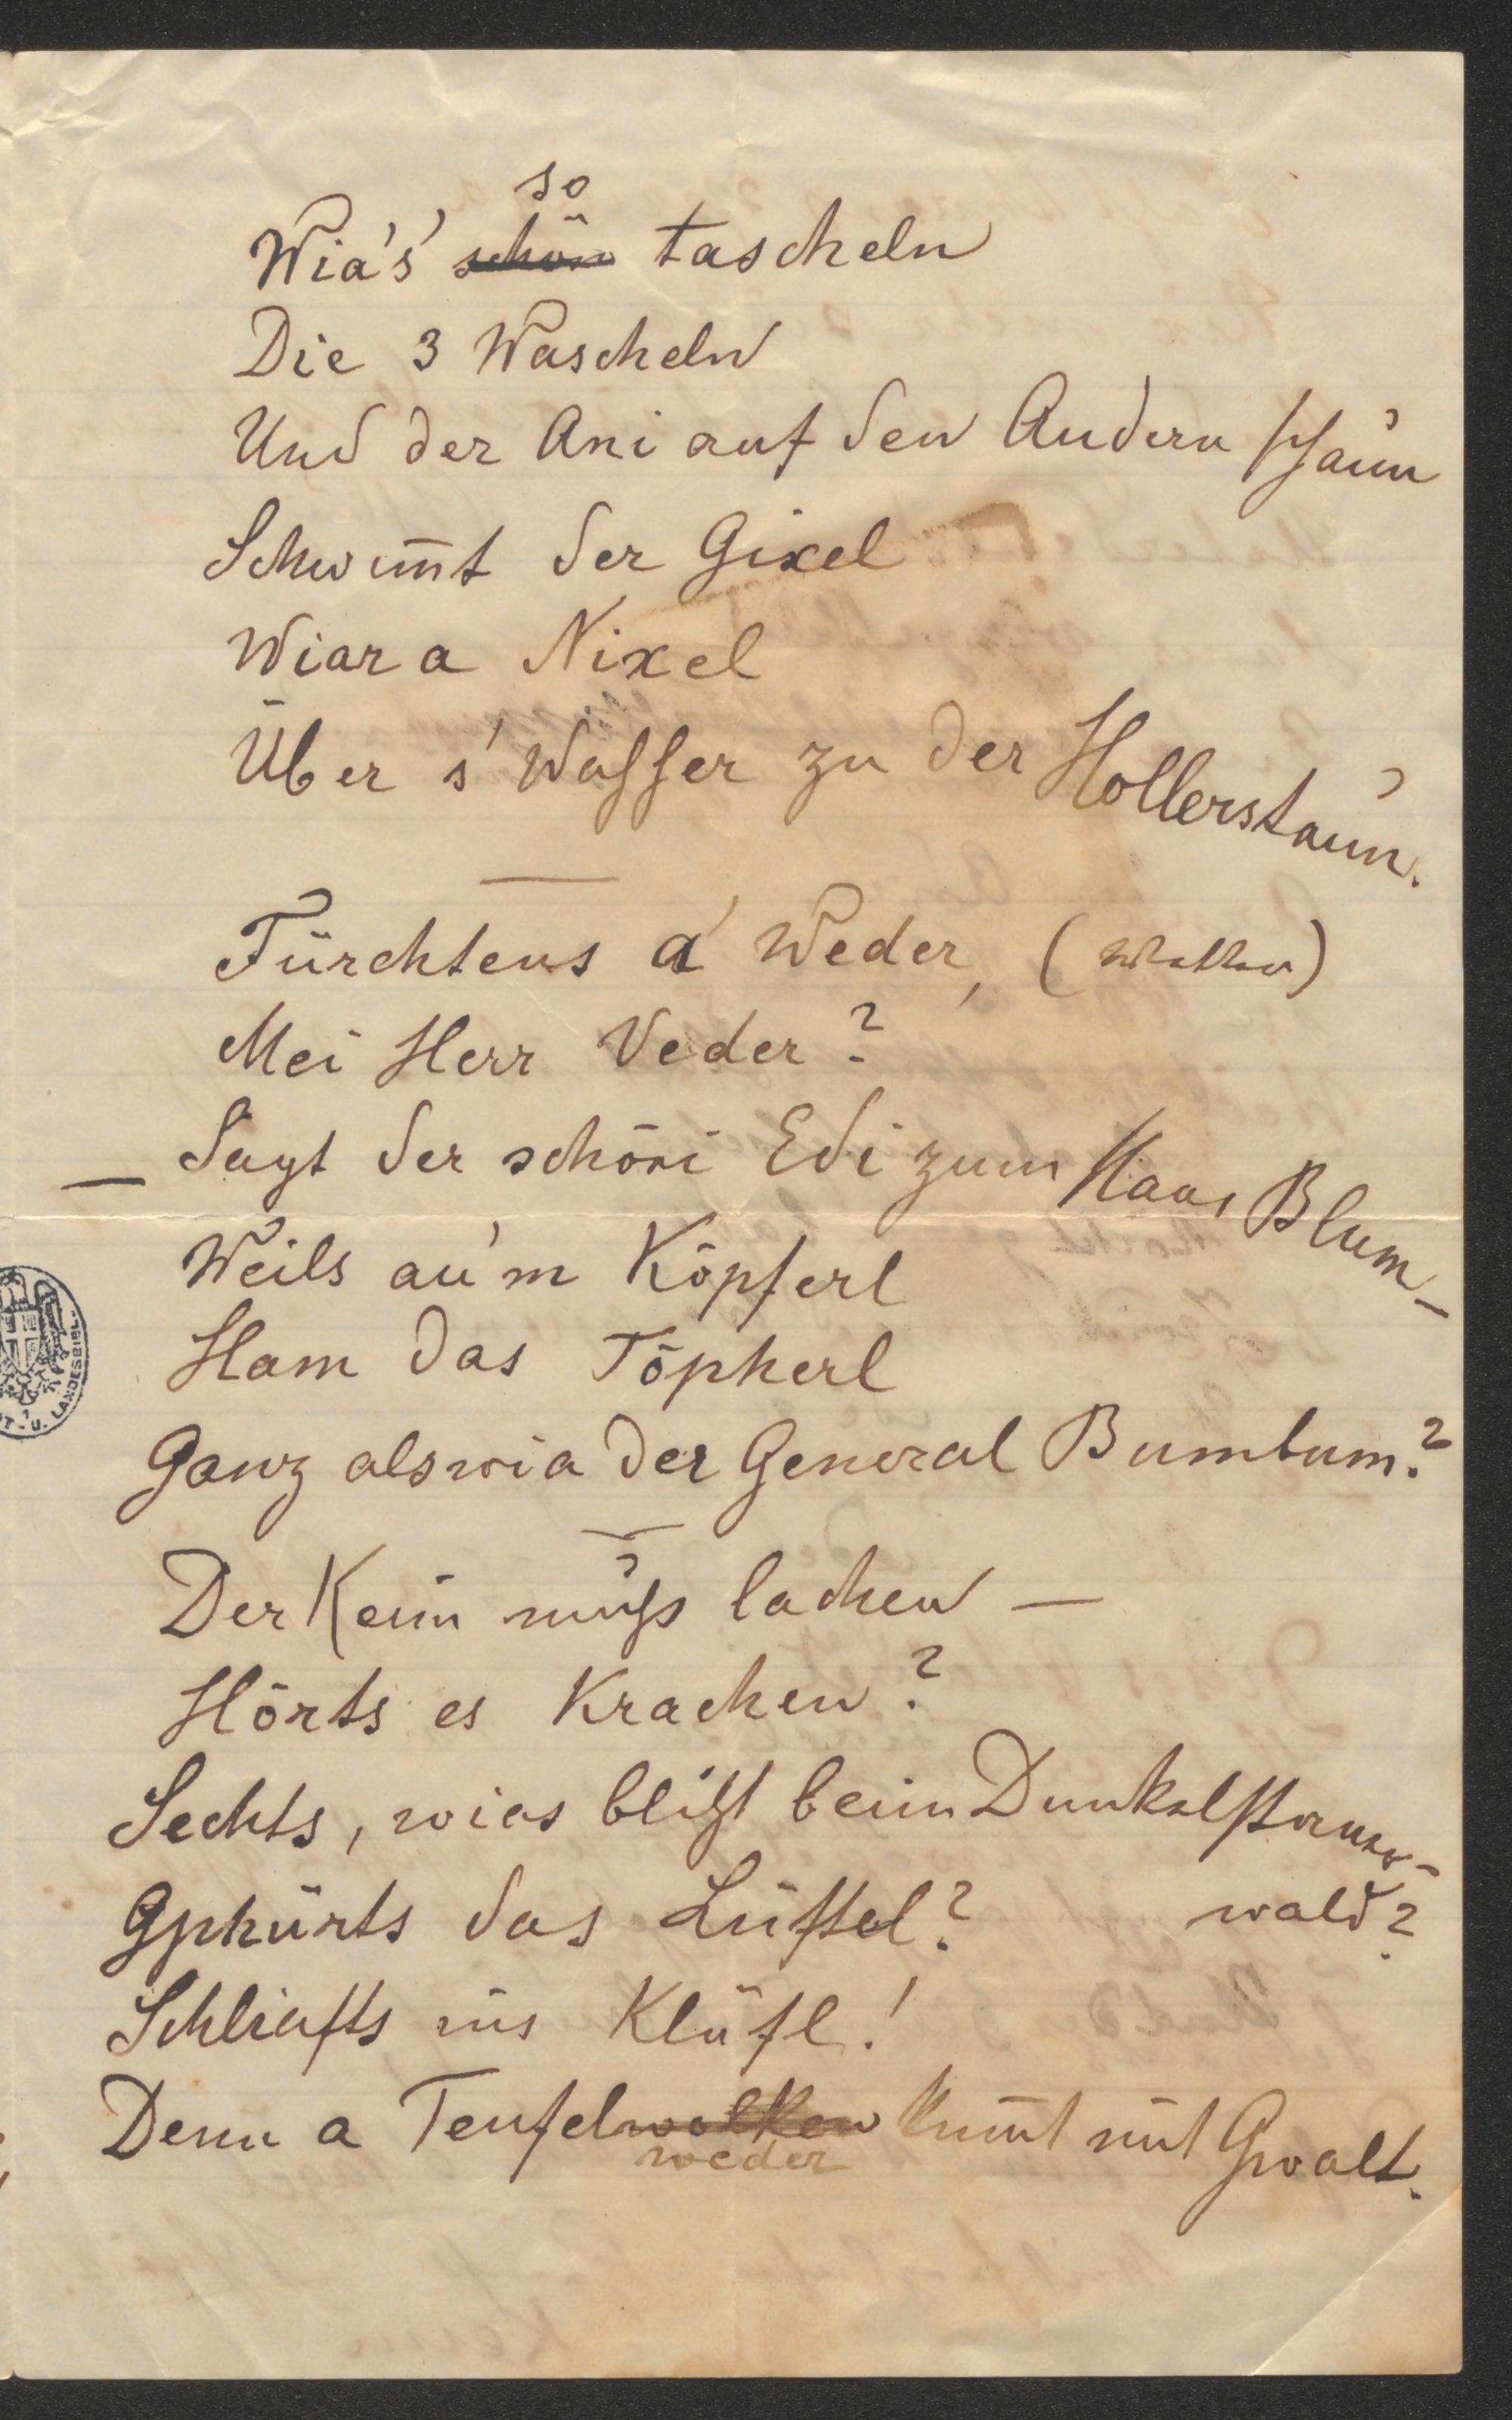 so
Wia's' schön tascheln
Die 3 Wascheln
Und der Ani auf den Andern schaun
Schwim̄t der Gixel
Wiar a Nixel
Über s' Wasser zu der Hollerstaun.
Fürchtens a' Weder, (Wetter)
Mei Herr Veder?
— Sagt der schöni Edi zum Hans Blum –
Weils au'm Köpferl
Ham das Töpherl
Ganz alswia der General Bumbum?
Der Keim muss lachen —
Hörts es Krachen?
Sechts, wies blitzt beim Dunkelstauer-
wald?
Gphürts das Lüftel?
Schliafts ins Klüfl!
Denn a Teufelwolken kum̄t mit Gwalt.
weder
T-U. LANDESBIBL.